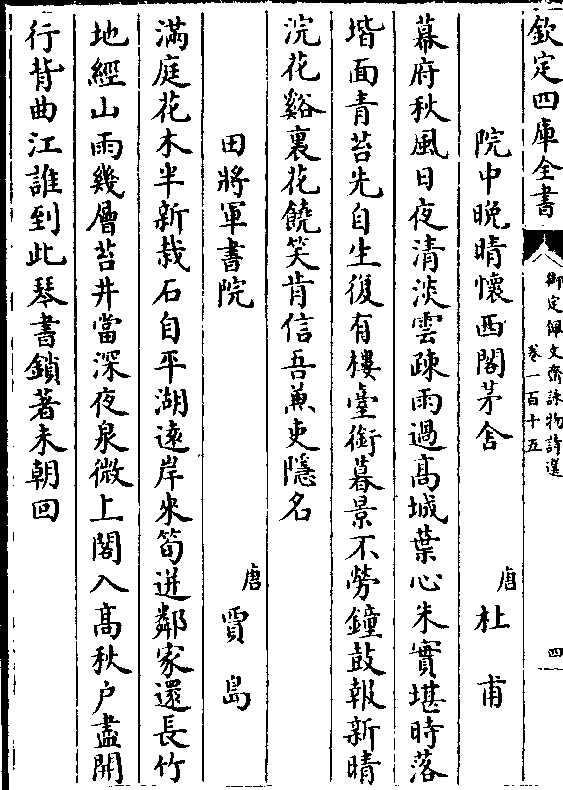 欽定四庫全書
御定佩文齋詠物詩選
卷一百十五
四
院中晚晴懷西閣茅舍
唐
杜甫
幕府秋風日夜清淡雲疎雨過高城葉心朱實堪時落
堦面青苔先自生復有樓臺銜暮景不勞鐘鼓報新晴
浣花谿裏花饒笑肯信吾兼吏隱名
田將軍書院
唐
賈島
滿庭花木半新栽石自平湖遠岸來筍迸鄰家還長竹
地經山雨幾層苔井當深夜泉微上閣入高秋户盡開
行背曲江誰到此琴書鎖著未朝回